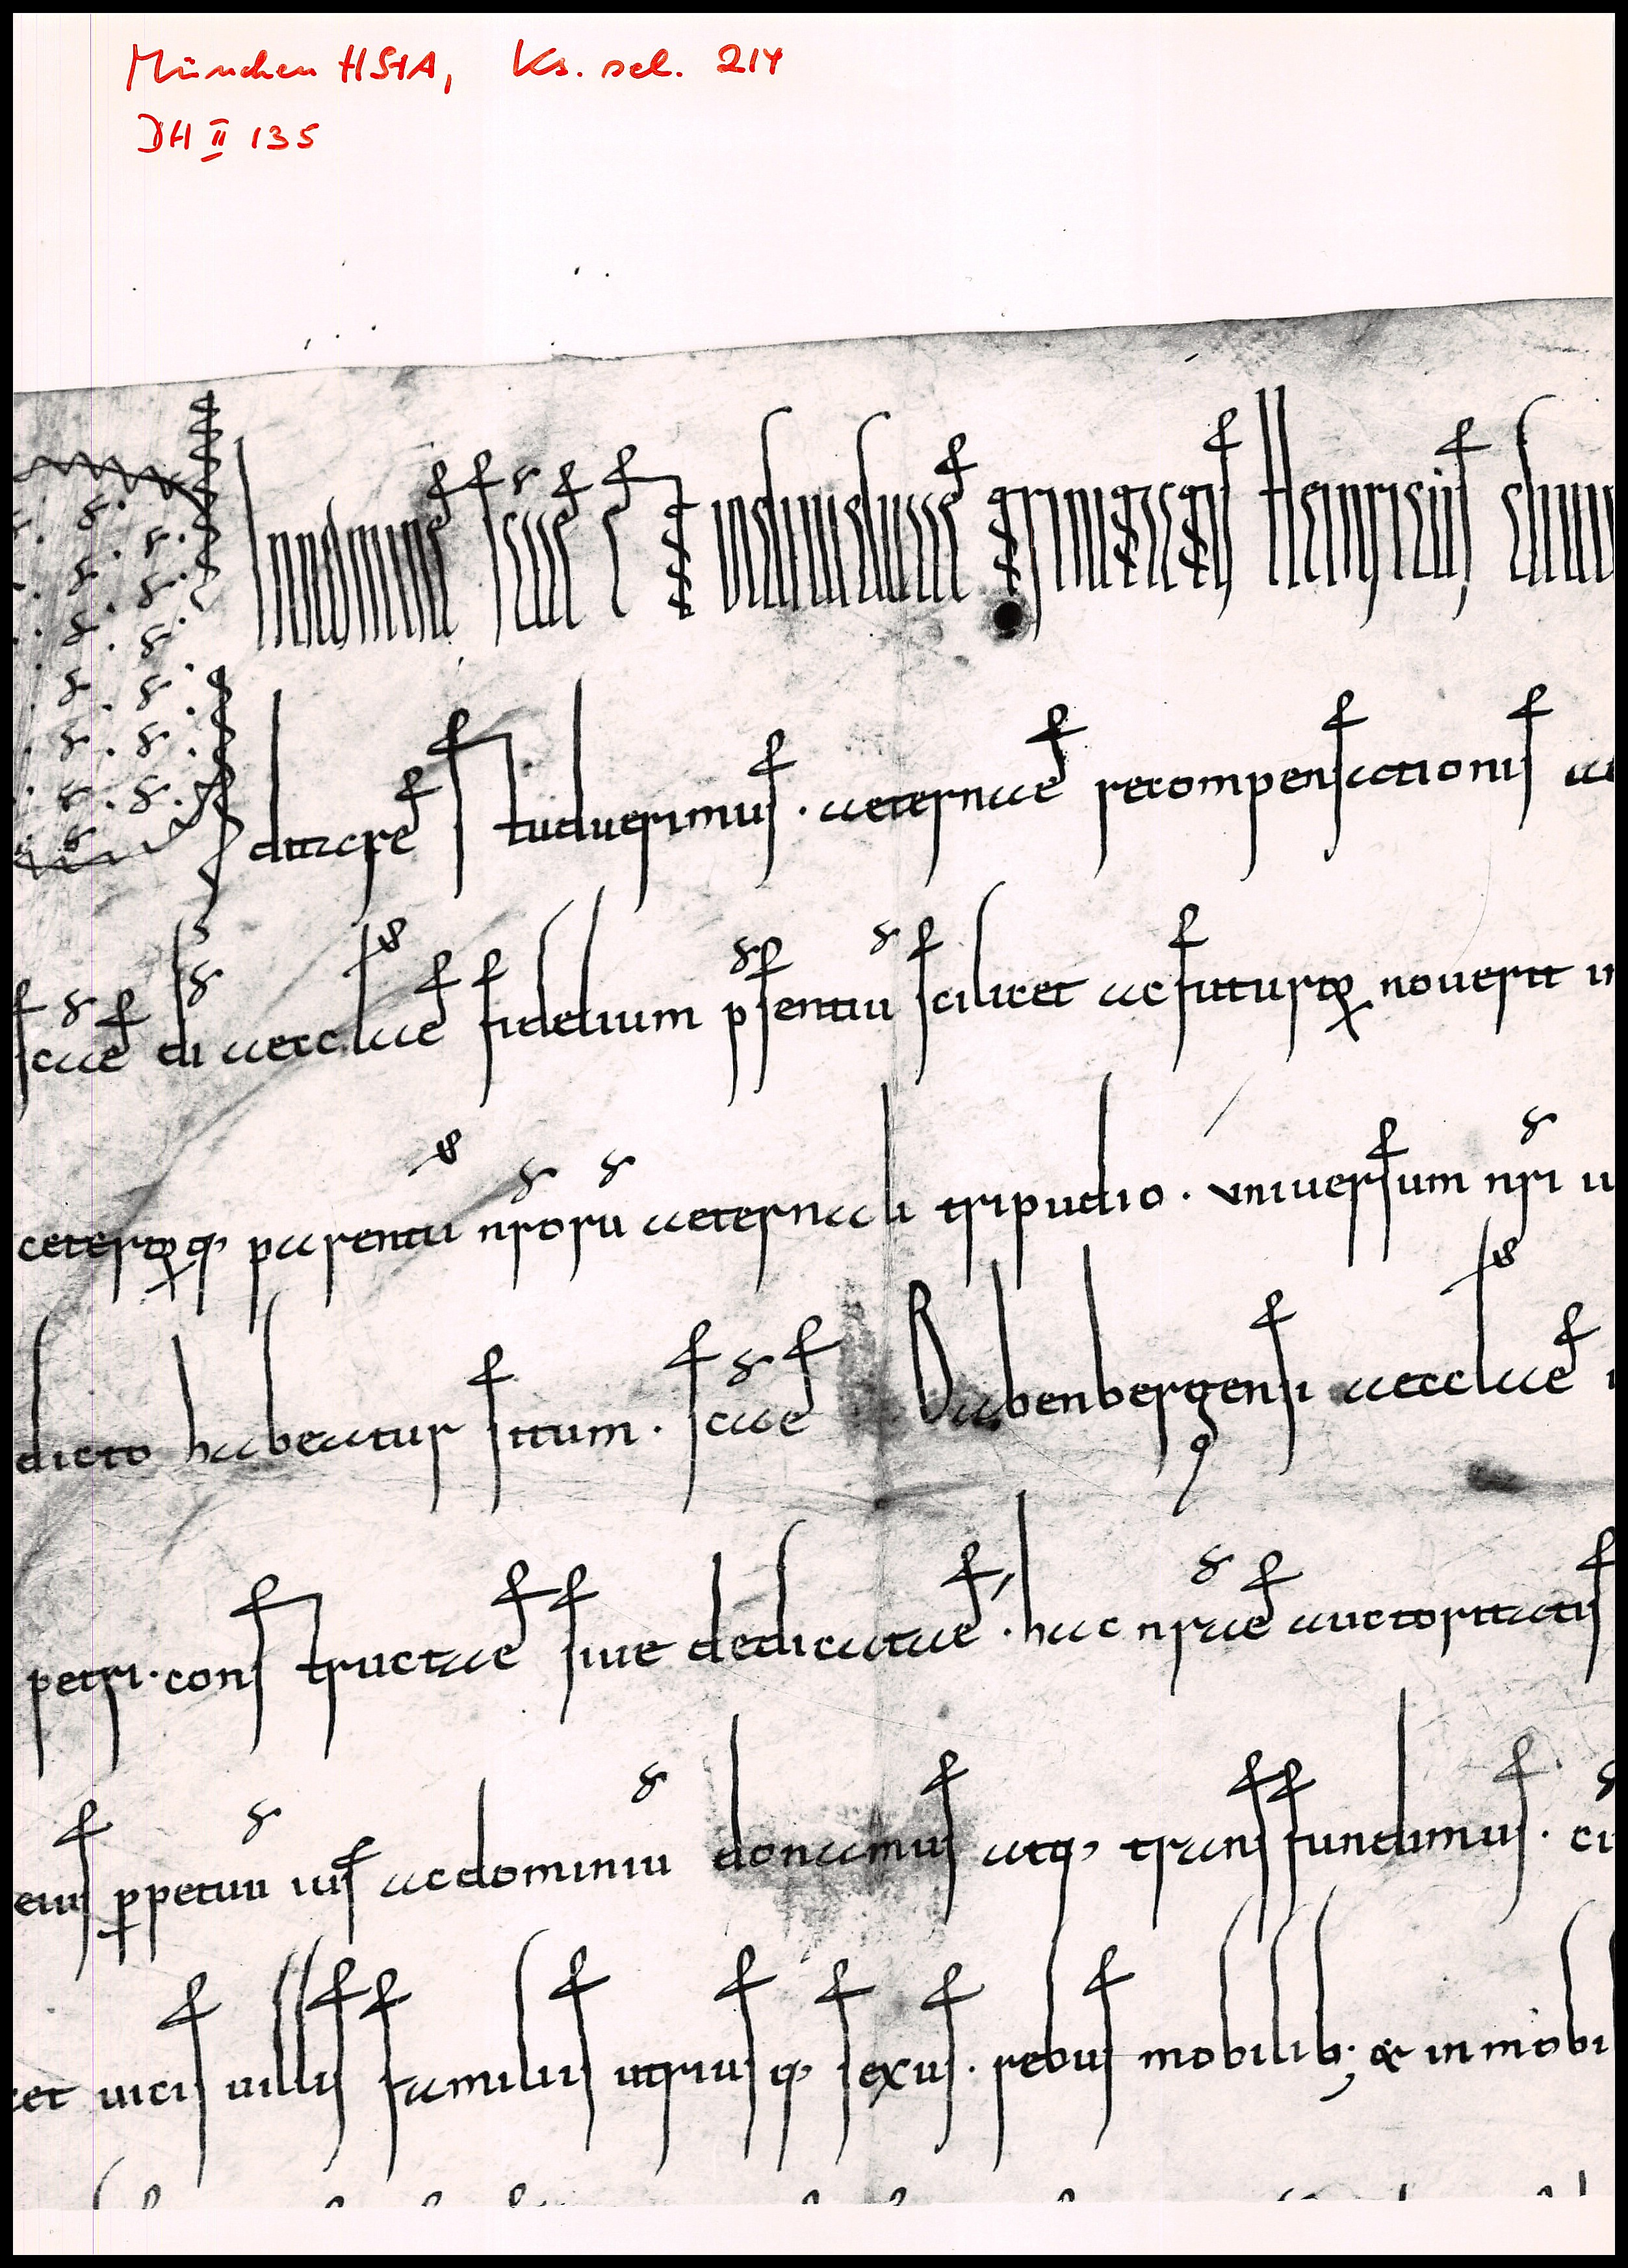 München HStA, Ks. sel. 214
DH II 135
In nomine sc̄ae & indiuiduae trinitatis Heinricus
ditare studuerimus. aeternae recompensationis
sc̄ae dī aeccl̄ae fidelium p̄sentiū scilicet ac futuroꝝ nouerit
ceteroꝝq; parentū nr̄orū aeternali tripudio. uniuersum nr̄i
dicto habeatur situm. sc̄ae Babenbergensi aeccl̄ae
petri. constructae siue dedicatae. hac nr̄ae auctoritatis
eius ꝑpetuū ius ac dominiū donamus atq; transfundimus.
cet uicis uillis familiis utriusq; sexus. rebus mobilib; & inmobi